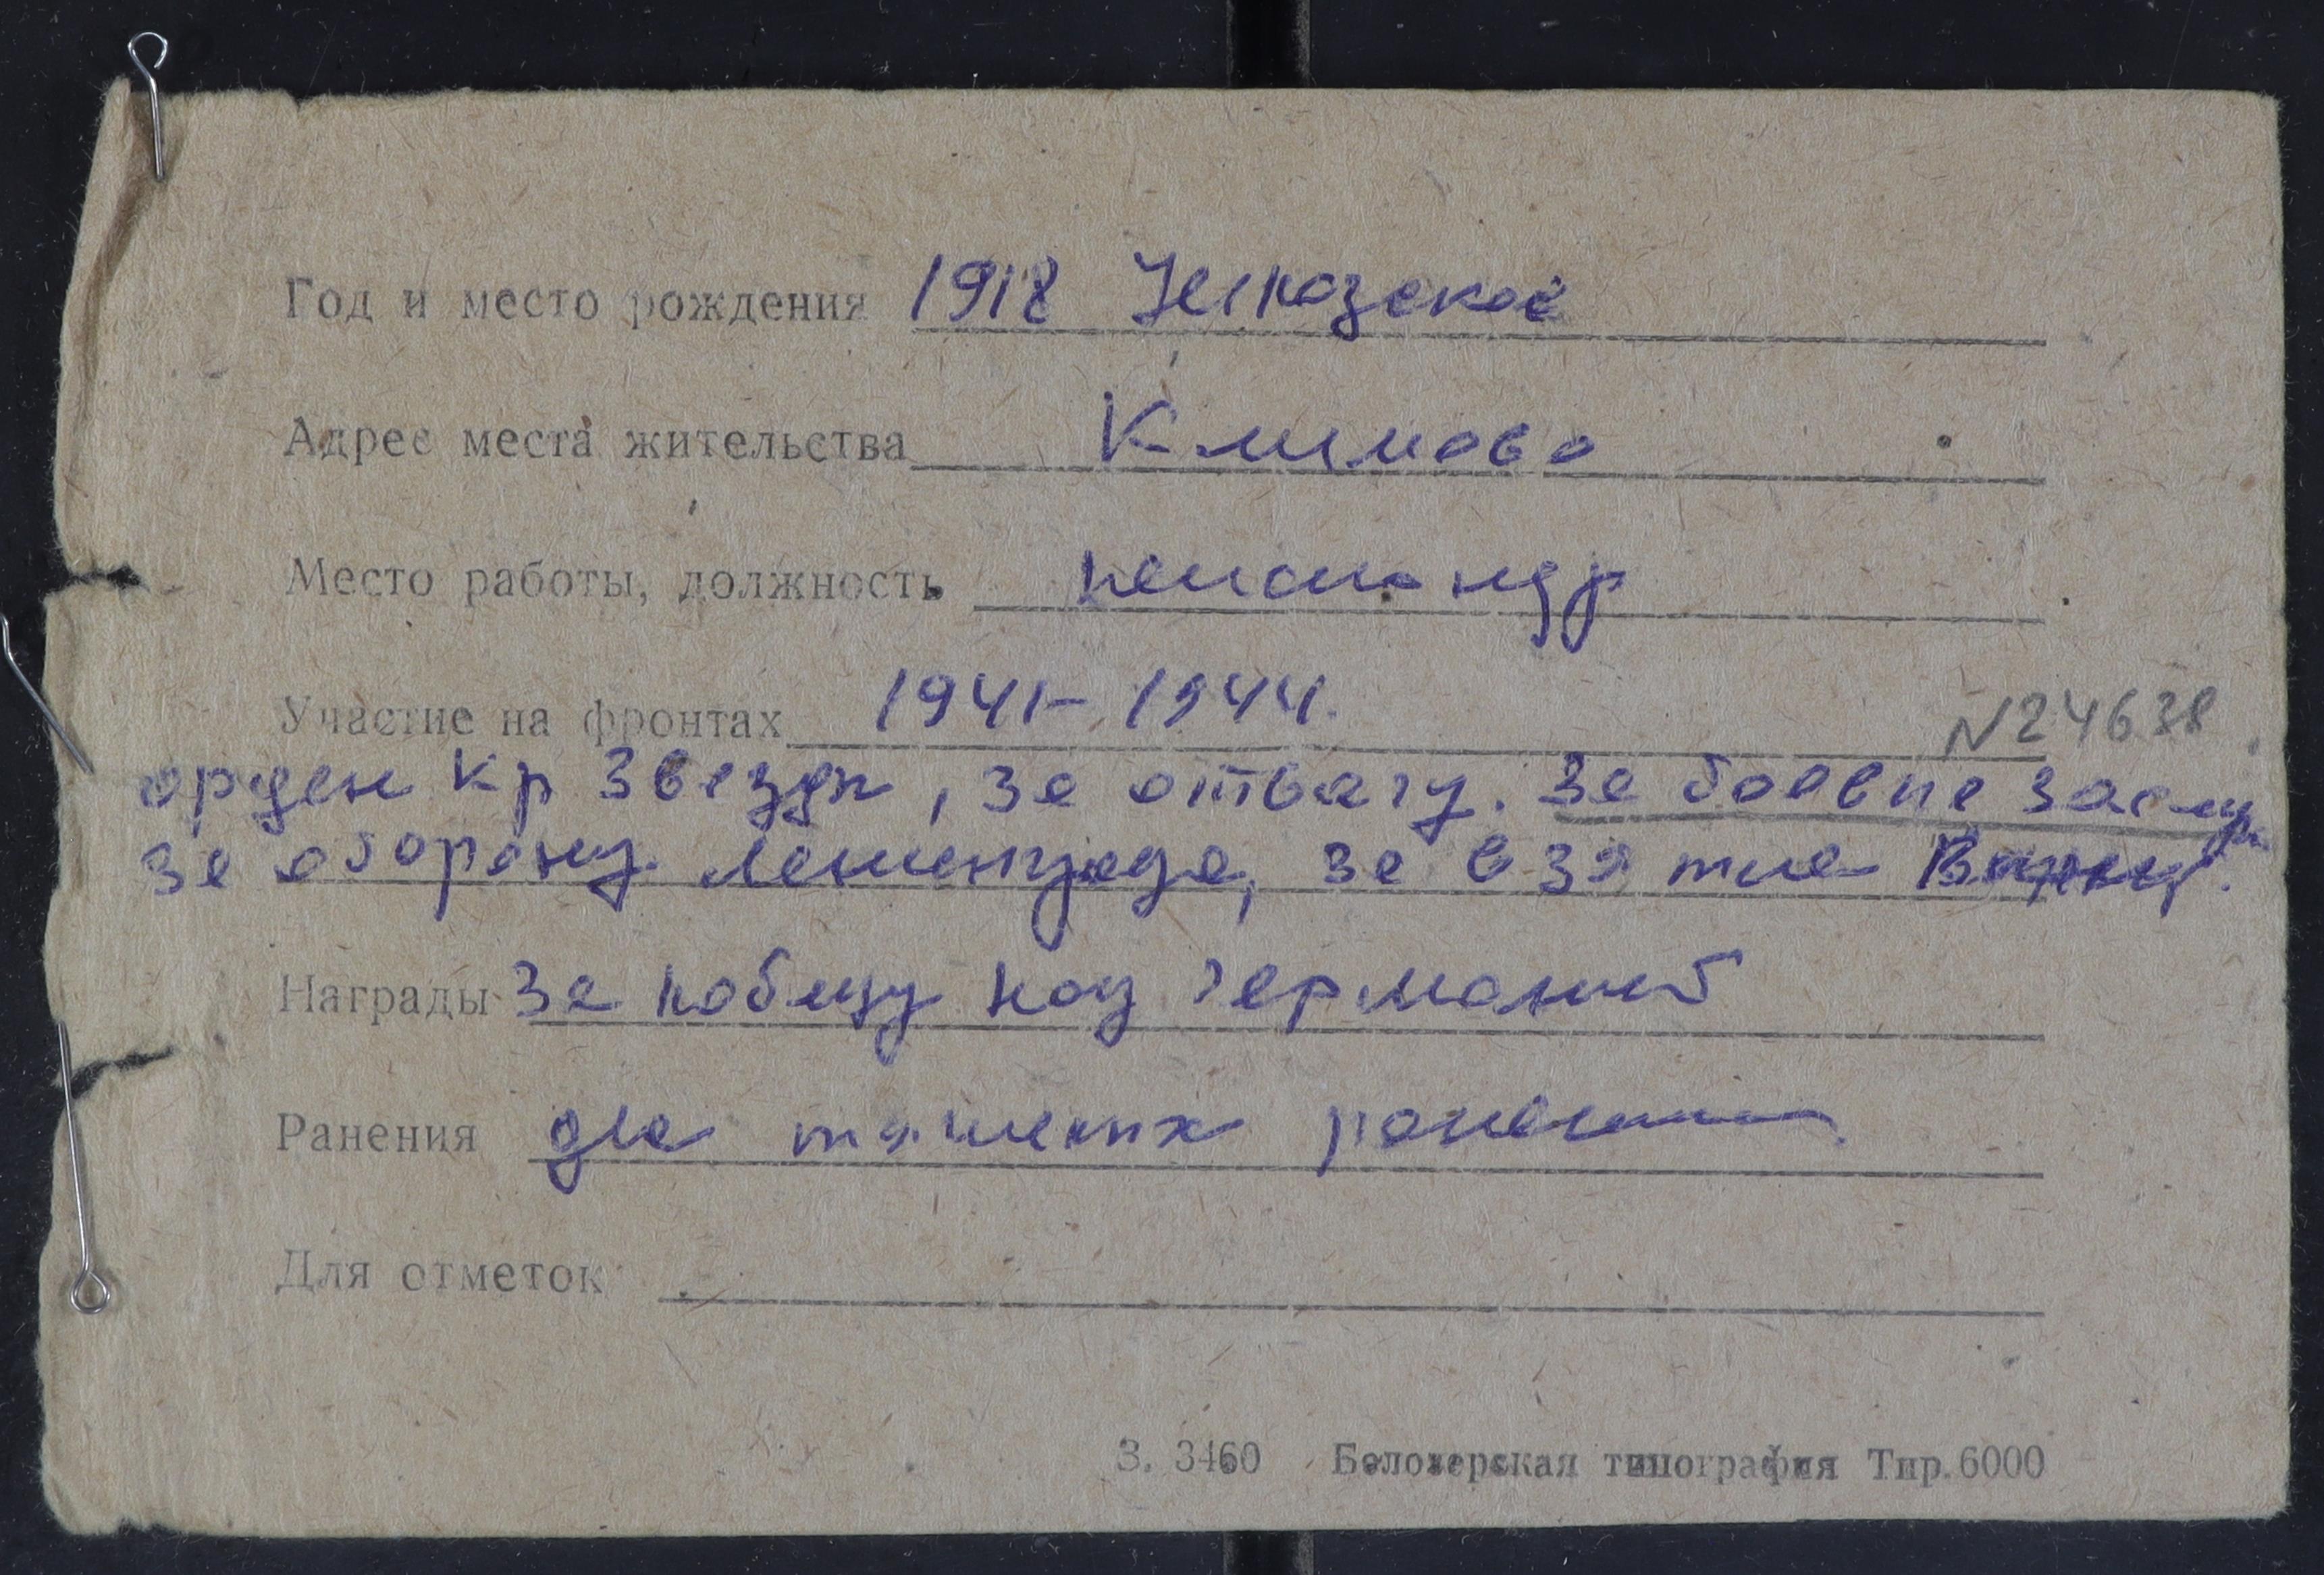 Год и место рождения 1918
Адрес места жительства Климово
Место работы, должность пенсионер
Участие на фронтах 1941-1944.
N24638
орден Кр Звезды, за отвагу. За боевые заслу
за оборону Ленинграда, за взятие Вены.
Награды За победу над Германией
Ранения два тяжелых ранения
Для отметок
З. 3460 Белозерская типография Тир. 6000